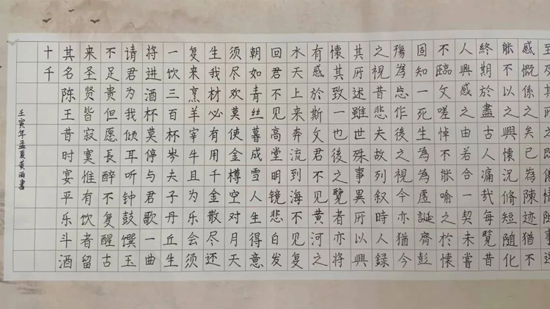 能不以之興懷況脩短隨化
人興感之由若合一契未嘗
不臨文嗟悼不能喻之於懷
固知一死生為虛誕齊彭
殤為妄作後之視今亦猶今
之視昔悲夫故列敘時人録
其所述雖世殊事異所以興
懷其致一也後之覽者亦將
有感於斯文君不見黄河之
水天上来奔流到海不复
回君不见高堂明镜悲白发
朝如青丝暮成雪人生得意
须尽欢莫使金樽空对月天
生我材必有用千金散尽还
复来烹羊宰牛且为乐会须
一饮三百杯岑夫子丹丘生
将进酒杯莫停与君歌一曲
请君为我倾耳听钟鼓馔玉
不足贵但愿长醉不复醒古
来圣贤皆寂寞惟有饮者留
其名陈王昔时宴平乐斗酒
十千
壬寅年孟夏黄雨書